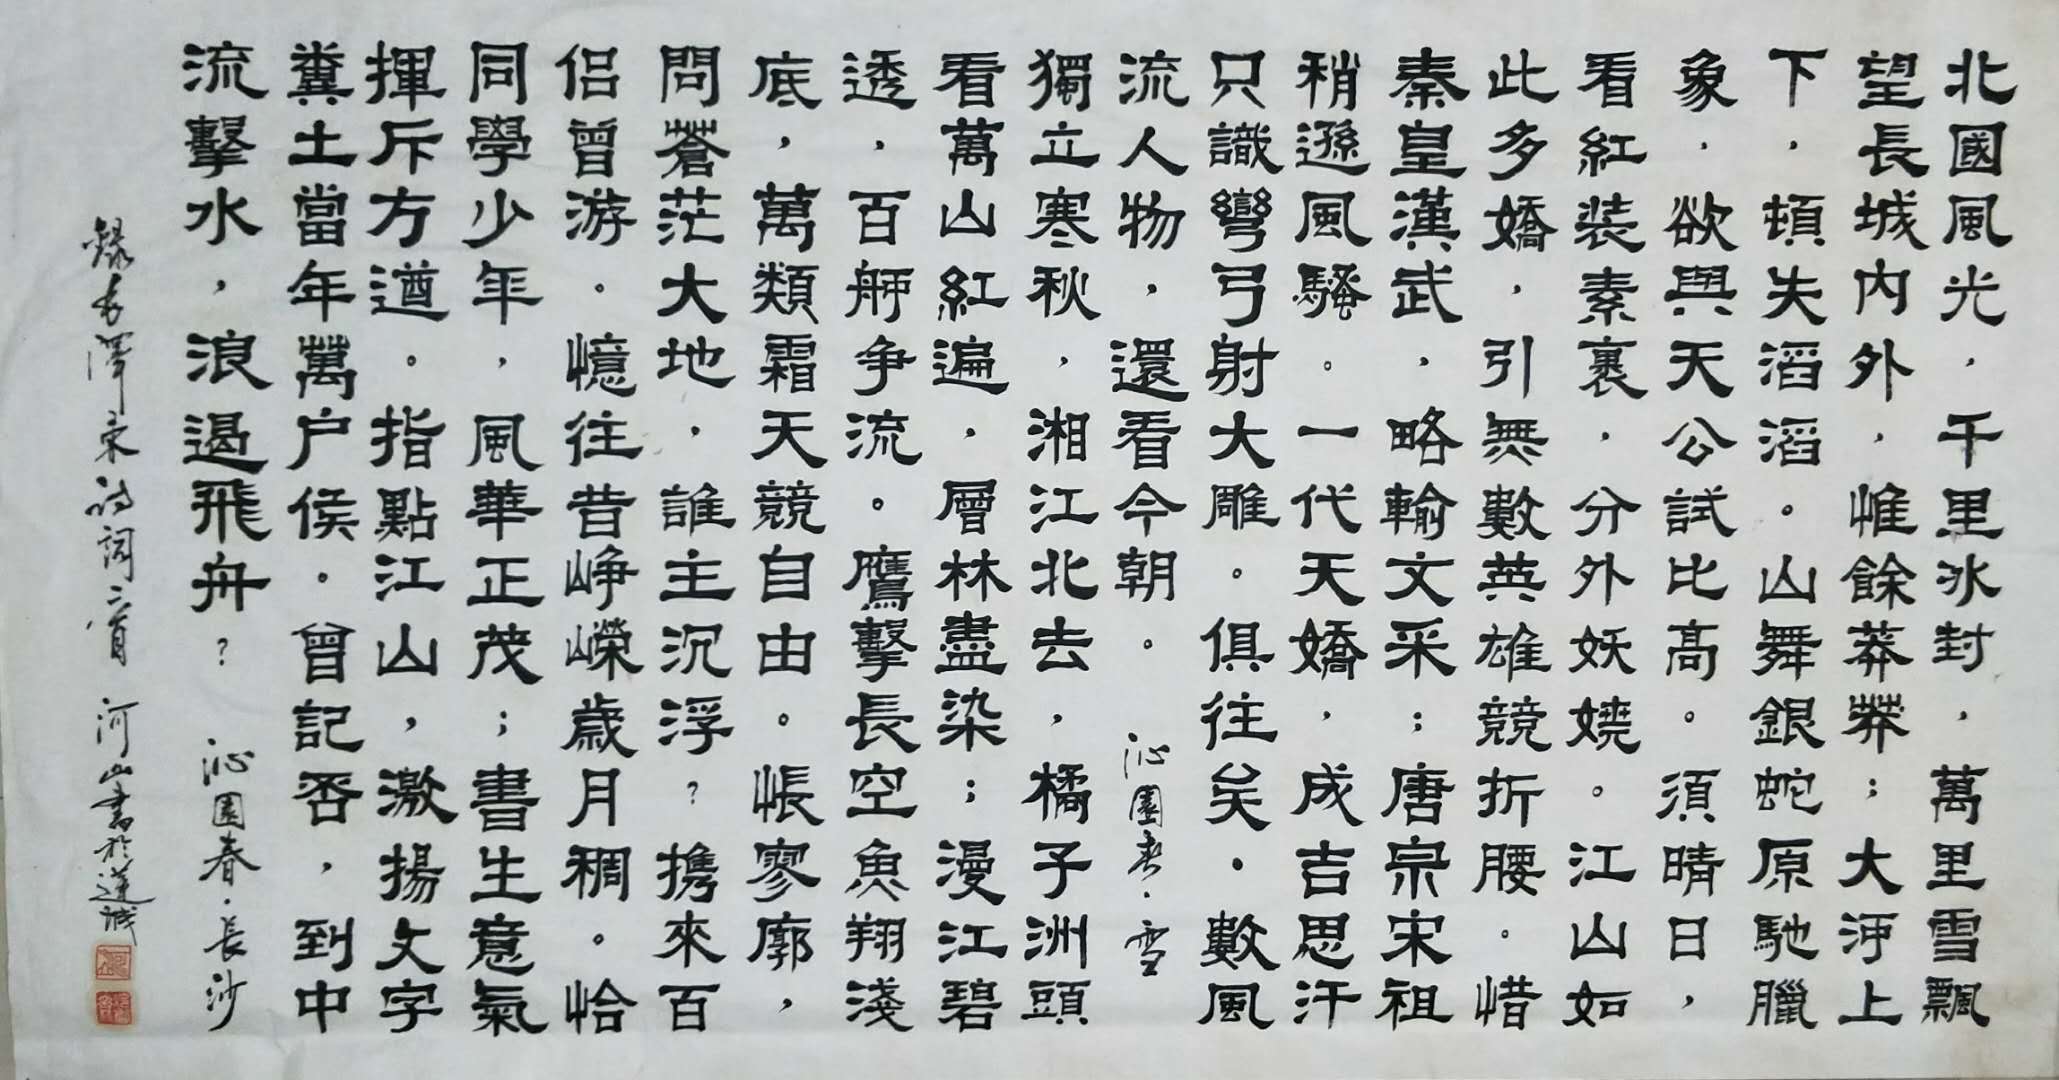 北國風光，千里冰封，萬里雪飄
望長城内外，惟餘莽莽；大河上
下，頓失滔滔。山舞銀蛇原馳臘
象，欲與天公試比高。須晴日，
看紅装素裹，分外妖嬈。江山如
此多嬌，引無數英雄競折腰。惜
秦皇漢武，略輸文采；唐宗宋祖
稍遜風騷。一代天嬌，成吉思汗
只識彎弓射大雕。俱往矣·數風
流人物，還看今朝。沁園春·雪
獨立寒秋，湘江北去，橘子洲頭
看萬山紅遍，層林盡染；漫江碧
透，百舸争流。鷹擊長空魚翔淺
底，萬類霜天競自由。帳寥廓，
問蒼茫大地，誰主沉浮？携來百
侣曾游。憶往昔峥嶸歲月稠。恰
同學少年，風華正茂；書生意氣
揮斥方遒。指點江山，激揚文字
糞土當年萬户侯。曾記否，到中
流擊水，浪遏飛舟？沁園春·長沙
錄毛澤東詩詞二首 河山書於蓮城